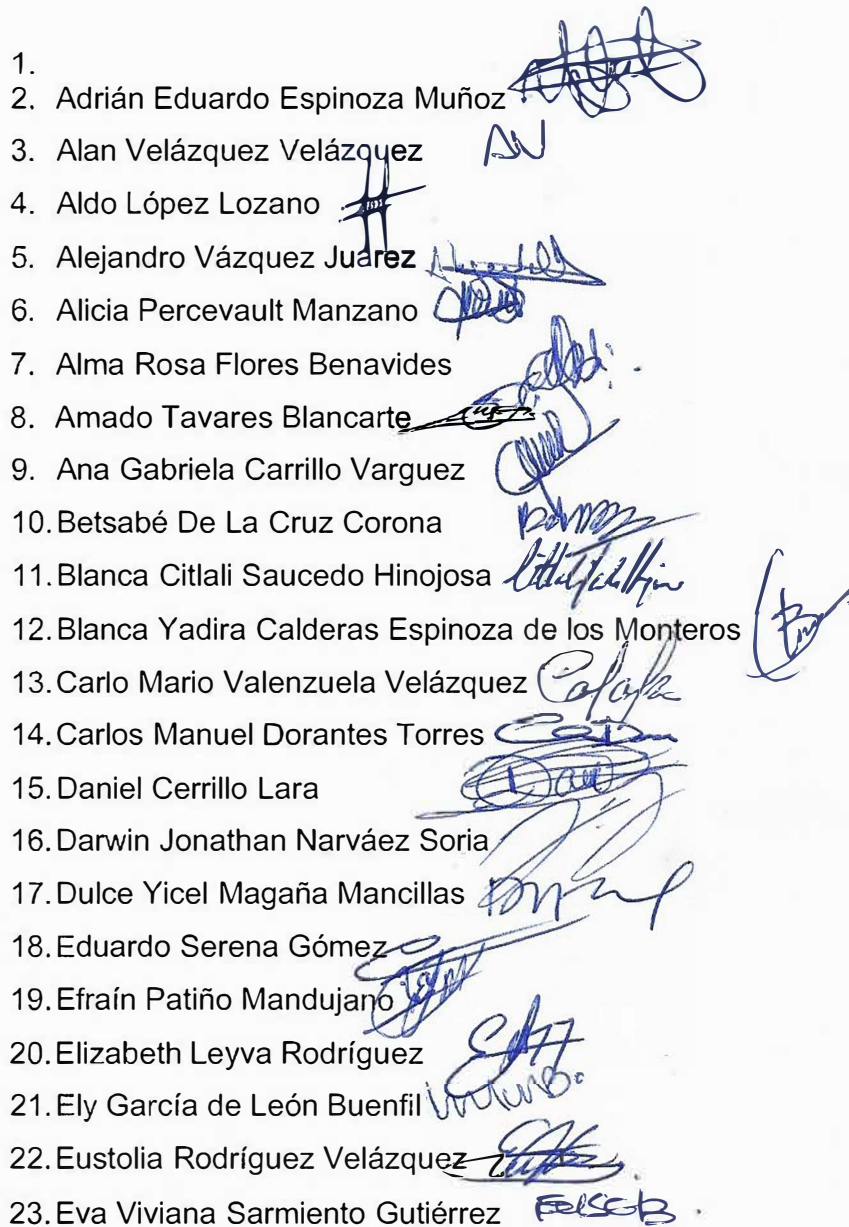 1.
2. Adrián Eduardo Espinoza Muñoz
3. Alan Velázquez Velázquez
4. Aldo López Lozano
5. Alejandro Vázquez Juárez
6. Alicia Percevault Manzano
7. Alma Rosa Flores Benavides
8. Amado Tavares Blancarte
9. Ana Gabriela Carrillo Varguez
10. Betsabé De La Cruz Corona
11. Blanca Citlali Saucedo Hinojosa
12. Blanca Yadira Calderas Espinoza de los Monteros
13. Carlo Mario Valenzuela Velázquez
14. Carlos Manuel Dorantes Torres
15. Daniel Cerrillo Lara
16. Darwin Jonathan Narváez Soria
17. Dulce Yicel Magaña Mancillas
18. Eduardo Serena Gómez
19. Efraín Patiño Mandujano
20. Elizabeth Leyva Rodríguez
21. Ely García de León Buenfil
22. Eustolia Rodríguez Velázquez
23. Eva Viviana Sarmiento Gutiérrez